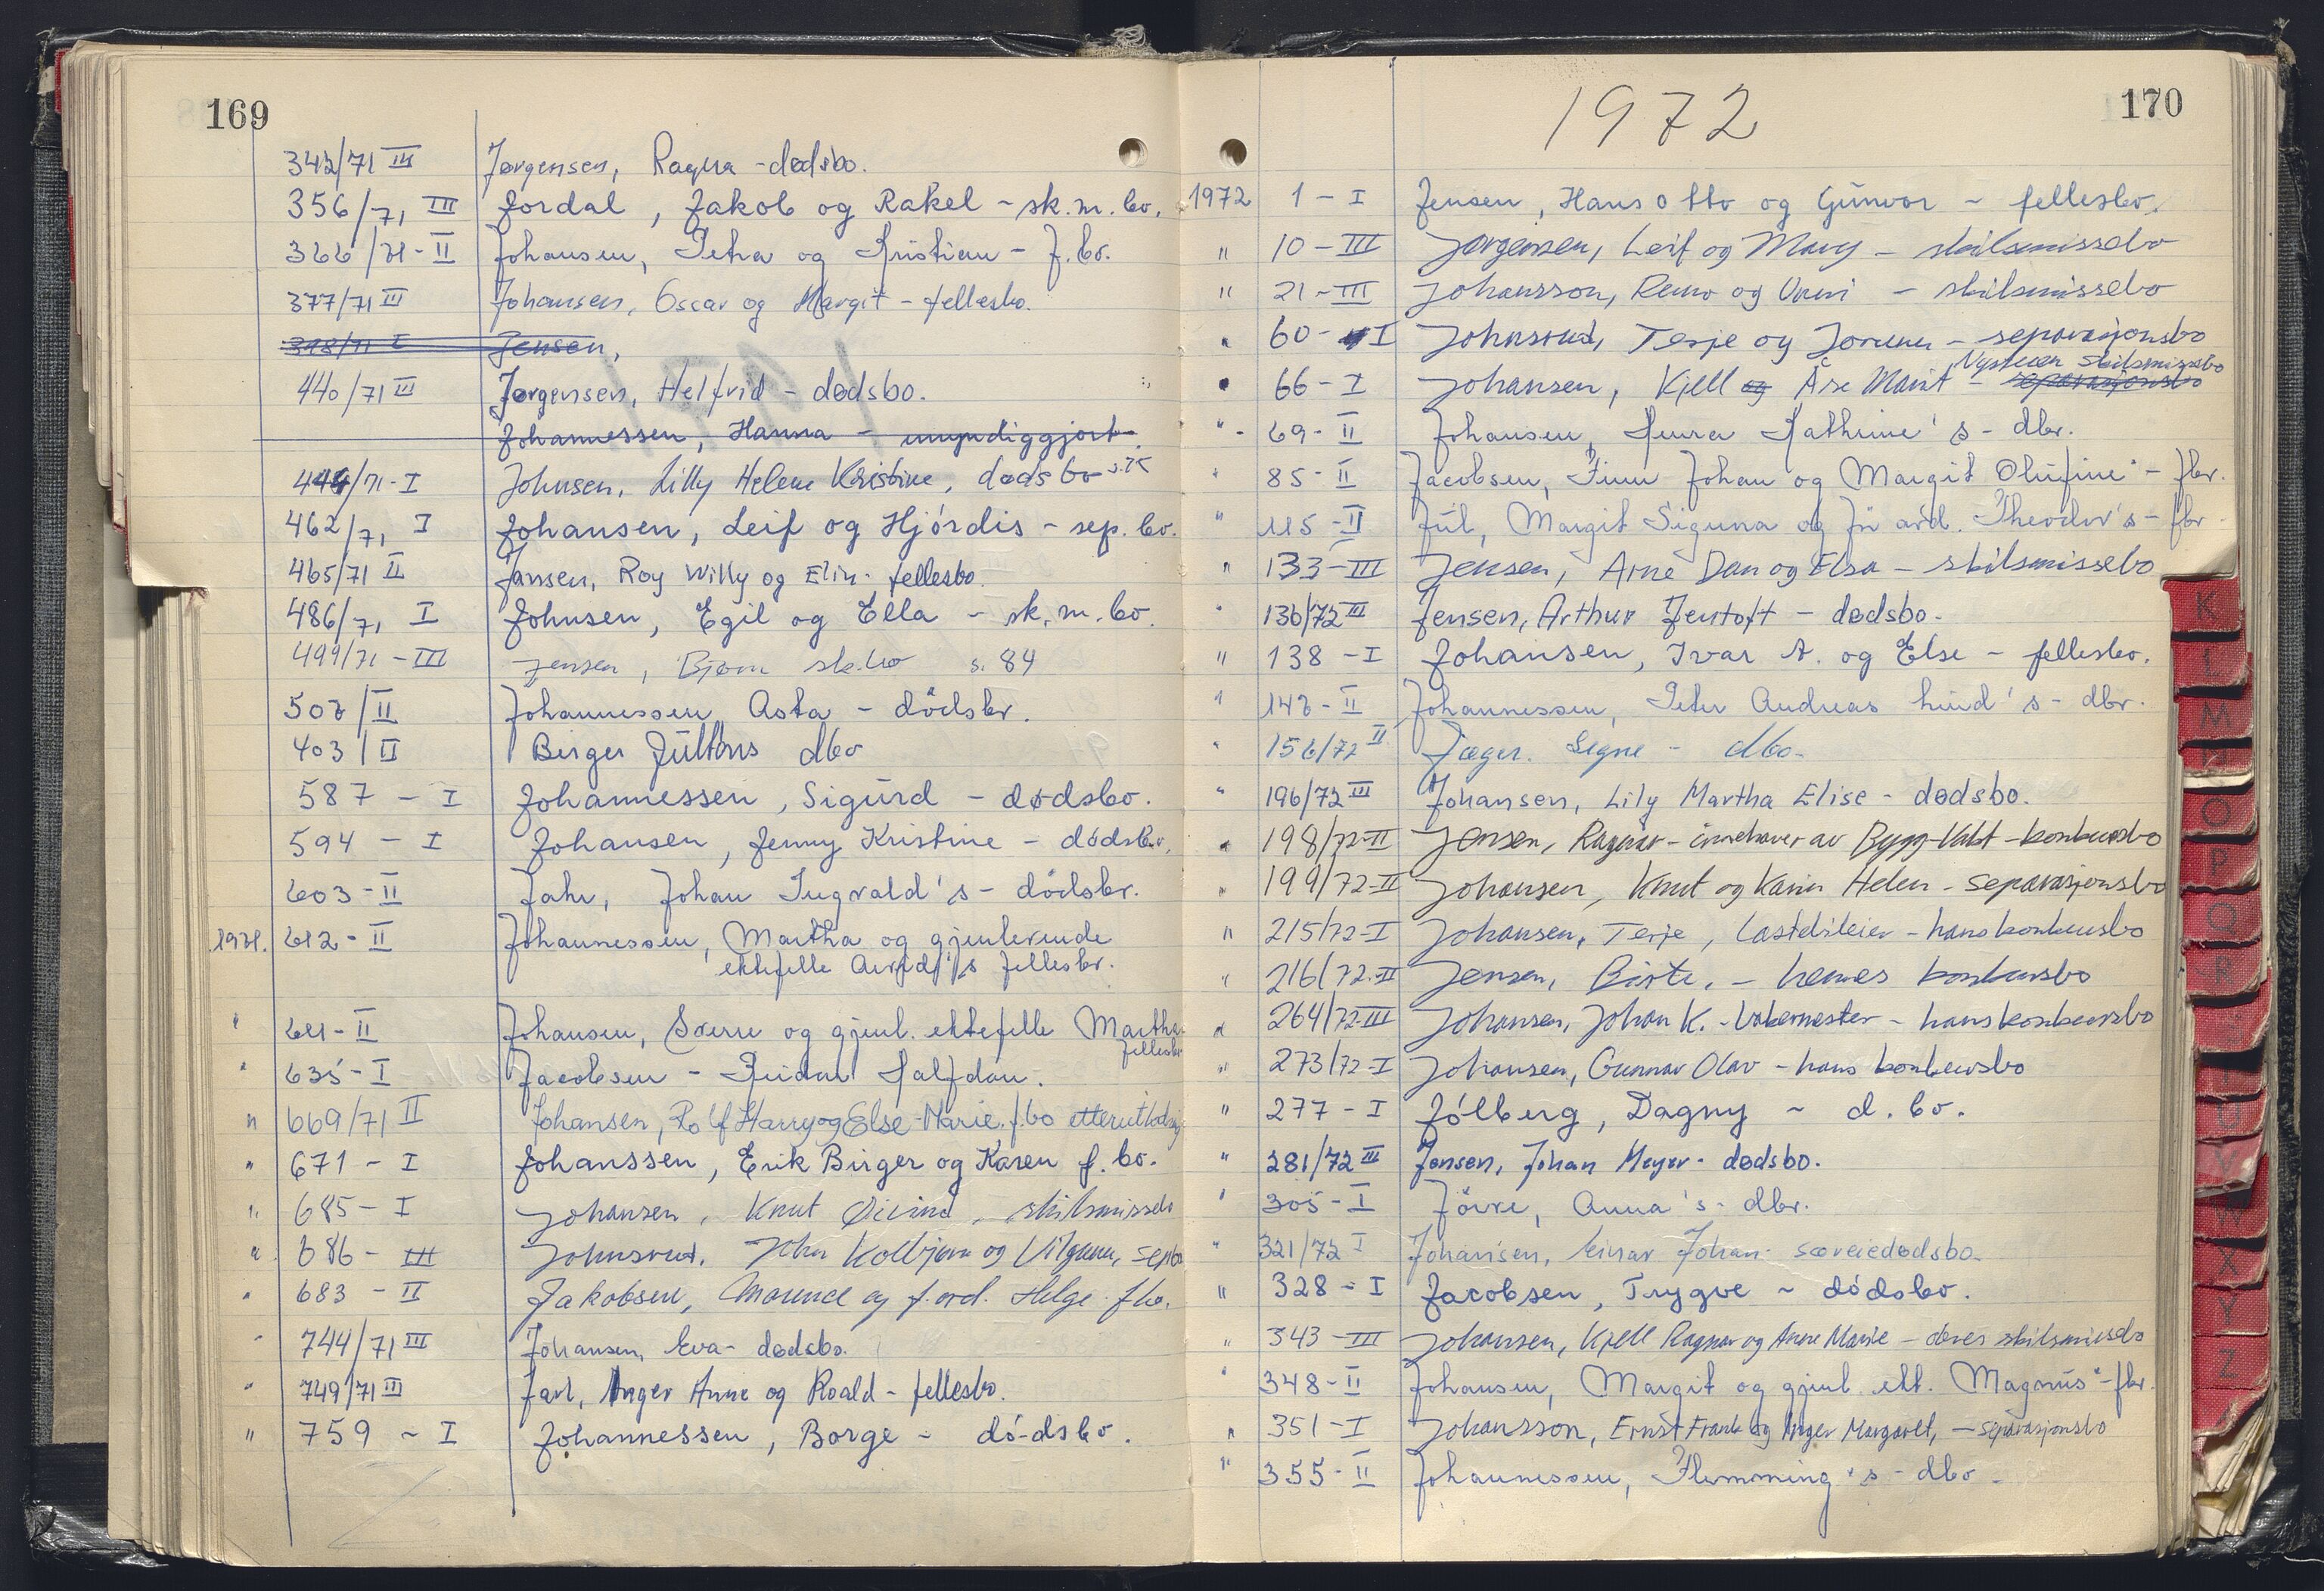 169
342/71 III Jørgensen, Ragna - dødsbo.
356/71 III Jordal, Jakob og Rakel - sk.m.bo.
366/71 - II Johansen, Petra og Kristian - f.bo.
377/71 III Johansen, Oscar og Margit - fellesbo.
398/71 I Jensen,
440/71 III Jørgensen, Helfrid - dødsbo.
Johannessen, Hanna - umyndiggjort.
444/71 - I Johnsen, Lilly Helene Kristine, dødsbo s.75
462/71 I Johansen, Leif og Hjórdis - sep. bo.
465/71 II Jansen, Roy Willy og Elin - fellesbo.
486/71 I Johnsen, Egil og Ella - sk.m.bo.
499/71 - III Jensen, Bjørn sk.bo s. 84
507/II Johannessen Asta - dödsbr.
403/II Birger Jültons dbo
587 - I Johannessen, Sigurd - dødsbo.
594 - I Johansen, Jenny Kristine - dódsbo.
603 - II Jahr, Johan Ingvald's - dödsbr.
1971. 612 - II Johannessen, Martha og gjenlevende
ektefelle Arvid's fellesbr.
" 621 - II Johansen, Sverre og gjenl. ektefelle Martha
fellesbr
" 635 - I Jacobsen - Reidar Halfdan.
" 669/71 II Johansen, Rolf Harry og Else-Marie. f.bo etter
" 671 - I Johanssen, Erik Birger og Karen f.bo.
" 685 - I Johansen, Knut Øivind, skilsmissebo
" 686 - III Johnsrud, John Kolbjørn og sepbo
" 683 - II Jakobsen, og f. ard. Helge fbo.
" 744/71 III Johansen, Eva - dødsbo.
" 749/71 III Jarl, Inger Anne og Roald - fellesbo.
" 759 - I Johannessen, Borge - dó-dsbo.
170
1972
1972 1 - I Jensen, Hans Otto og Gunvor - fellesbo.
" 10 - III Jørgensen, Leif og Mary - skilsmissebo
" 21 - III Johansson, og - skilsmissebo
" 60 - I Johnsrud, Terje og Jorunn - separasjonsbo
Nystuen skilsmissebo
66 - I Johansen, Kjell og Åse Marit - separasjonsbo
" - 69 - II Johansen, Kathrine's - dbr.
" 85 - II Jacobsen, Finn Johan og Margit Olufine" - fbr.
" 115 - II Jül, Margit Siguna og Theodor's - fbr
" 133 - III Jensen, Arne Dan og Elsa - skilsmissebo
" 136/72 III Jensen, Arthur Jentoft - dødsbo.
" 138 - I Johansen, Ivar A. og Else - fellesbo.
" 147 - II Johannessen, Peter Andreas Lund's - dbr.
" 156/72 II Jæger. Signe - dbo.
" 196/72 III Johansen, Lily Martha Elise - dødsbo.
" 198/72-II Jensen, Ragnar - innehaver av Bygg-Vakt - konkursbo
" 199/72-II Johansen, Knut og Karin Helen - separasjonsbo
" 215/72-I Johansen, Terje, Lastebileier - hans konkursbo
" 216/72-II Jensen, Birte. - hennes konkursbo
" 264/72-III Johansen, Johan K. - Vaktmester - hans konkursbo
" 273/72-I Johansen, Gunnar Olav - hans konkursbo
" 277 - I Jólberg, Dagny - d. bo.
" 281/72 III Jensen, Johan Meyer - dødsbo.
" 305 - I Jövre, Anna's - dbr.
" 321/72 I Johansen, Einar Johan - særeiedødsbo.
" 328 - I Jacobsen, Trygve - dódsbo.
" 343 - III Johansen, Kjell Ragnar og Anne Marie - deres skilsmissebo
" 348 - II Johansen, Margit og gjenl. ekt. Magnus" - fbr.
" 351 - I Johansson, Ernst Frank og Inger Margaret, - separasjonsbo
" 355 - II Johannessen, Flemming's - dbo.
K
L
M
N
O
P
Q
R
T
U
V
W
X
Y
Z